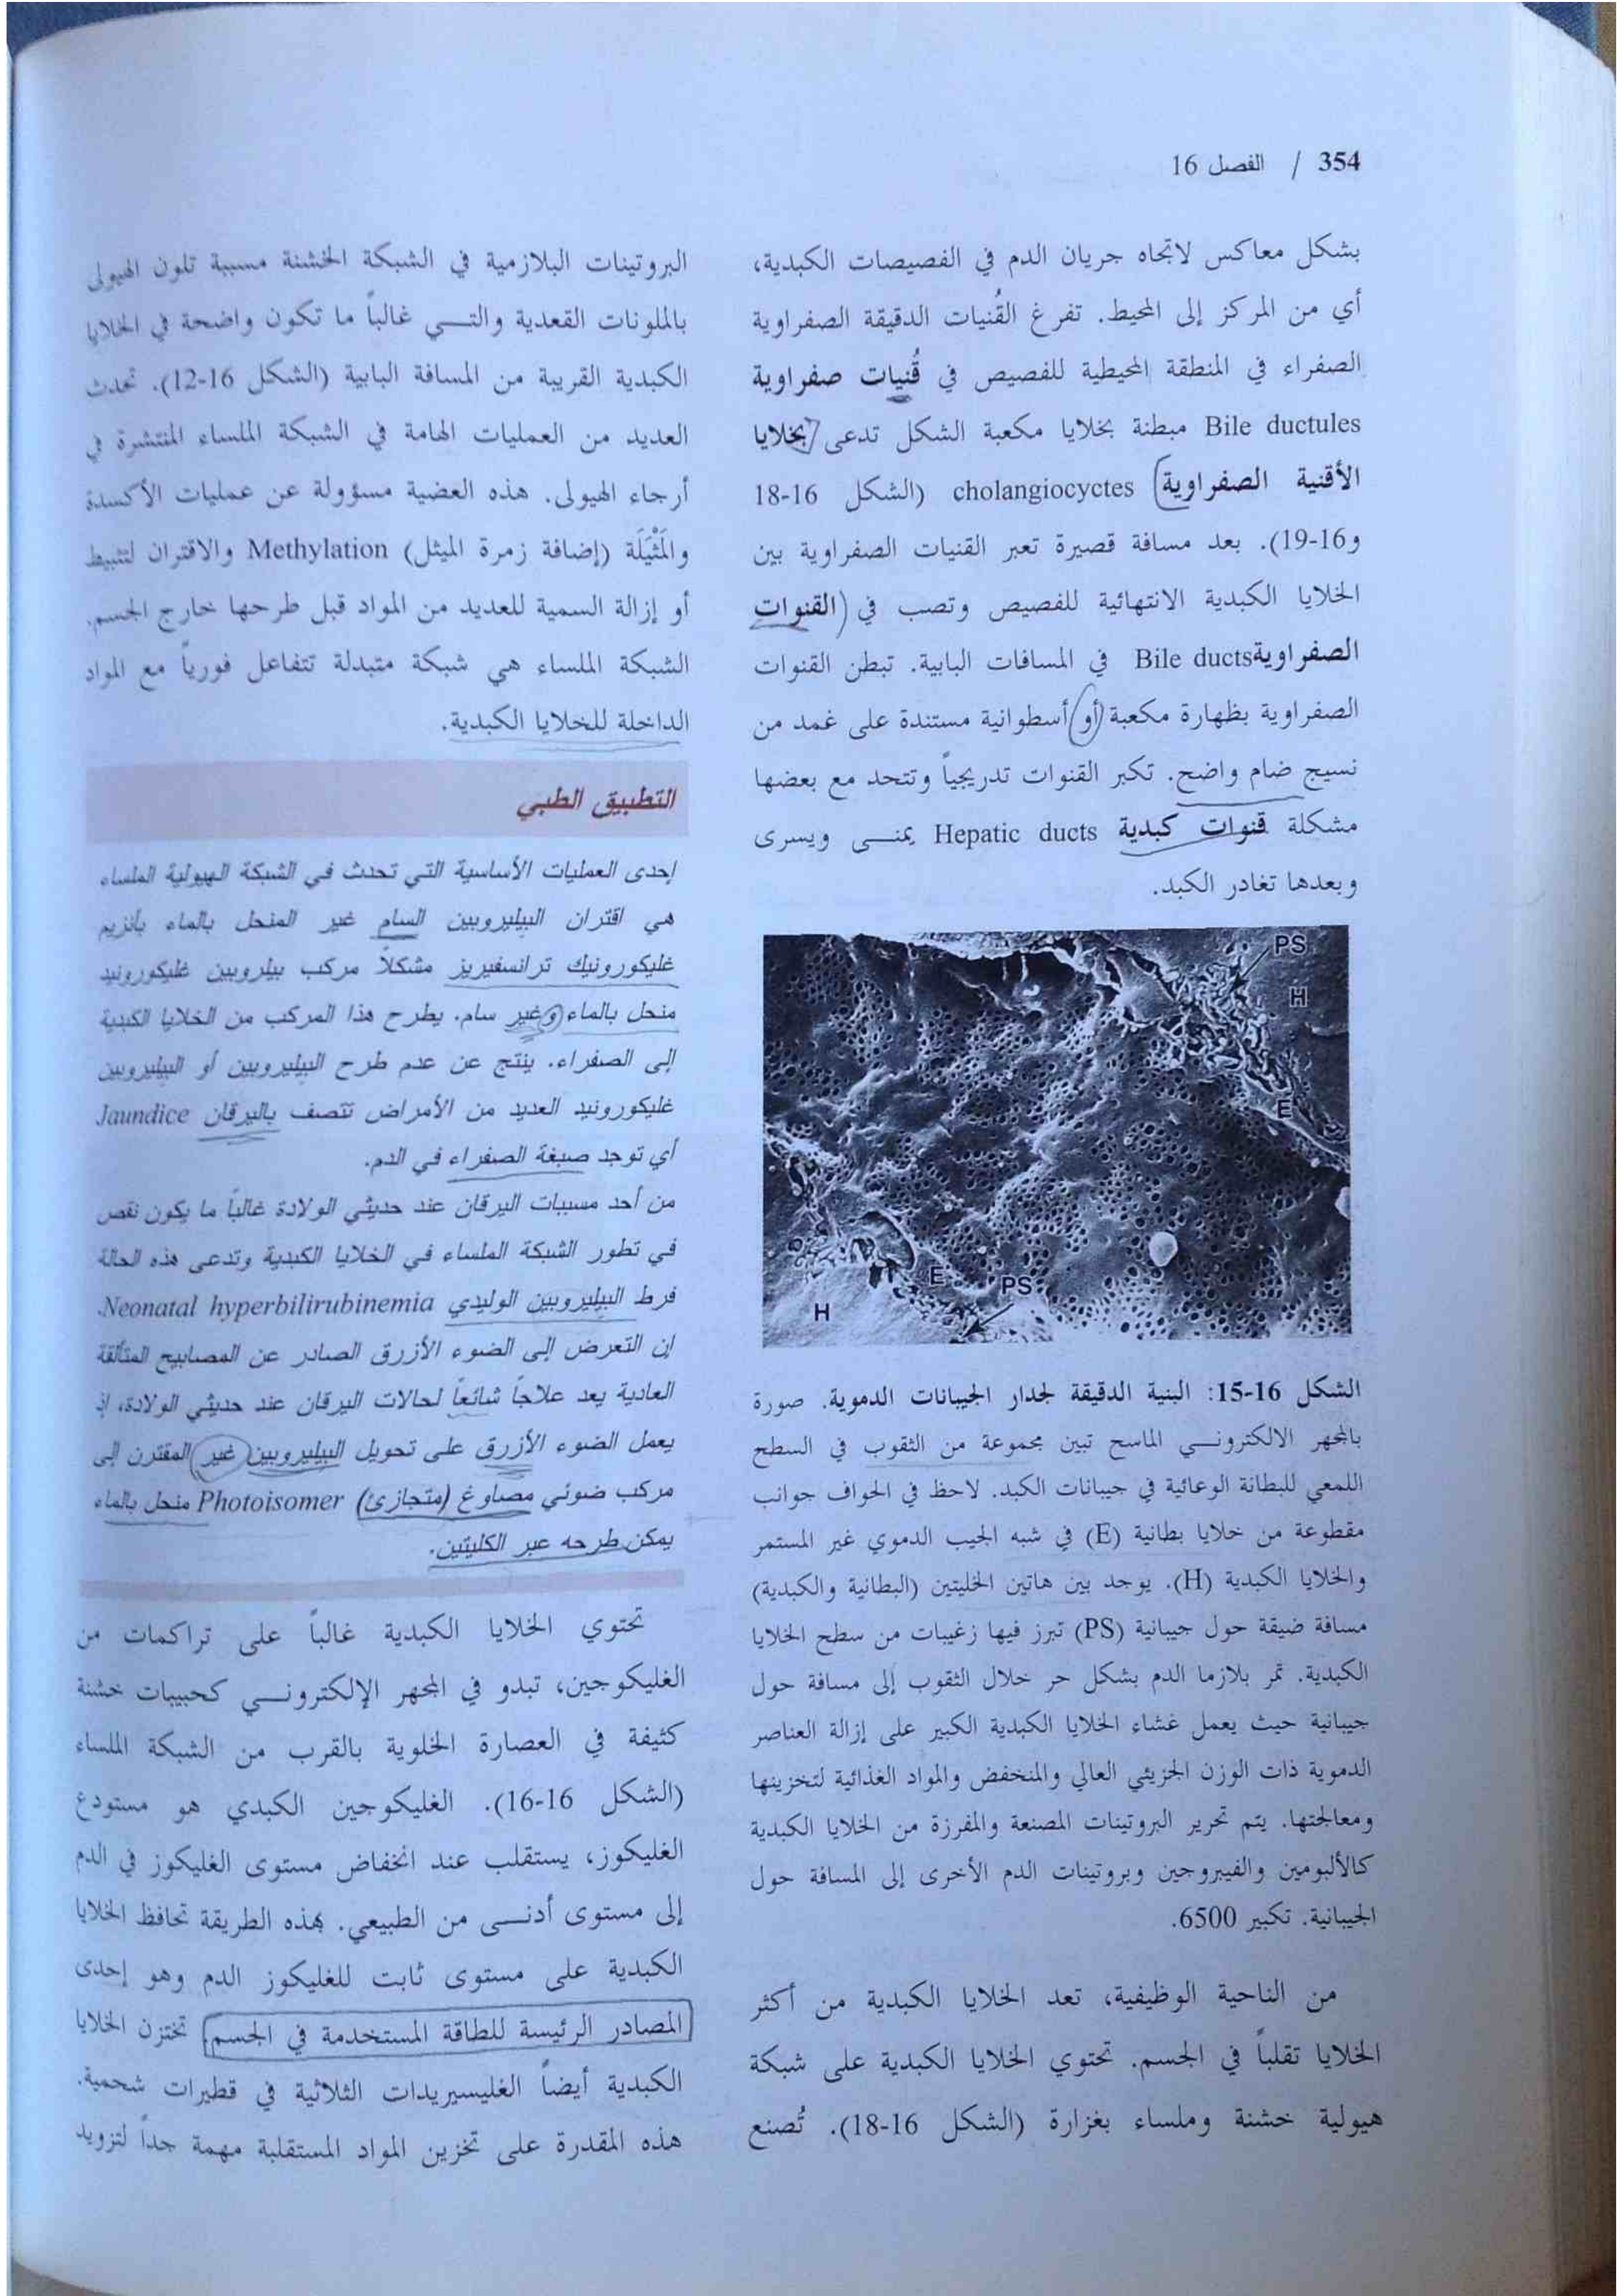 354 / الفصل 16
بشكل معاكس لاتجاه جريان الدم في الفصيصات الكبدية،
أي من المركز إلى المحيط. تفرغ القُنيات الدقيقة الصفراوية
الصفراء في المنطقة المحيطية للفصيص في قُنيات صفراوية
Bile ductules مبطنة بخلايا مكعبة الشكل تدعى بخلايا
الأقنية الصفراوية cholangiocyctes (الشكل 16-18
و16-19). بعد مسافة قصيرة تعبر القنيات الصفراوية بين
الخلايا الكبدية الانتهائية للفصيص وتصب في القنوات
الصفراوية Bile ducts في المسافات البابية. تبطن القنوات
الصفراوية بظهارة مكعبة أو أسطوانية مستندة على غمد من
نسيج ضام واضح. تكبر القنوات تدريجياً وتتحد مع بعضها
مشكلة قنوات كبدية Hepatic ducts يمنــى ويسرى
وبعدها تغادر الكبد.
PS
H
E
E
PS
H
الشكل 16-15: البنية الدقيقة لجدار الجيبانات الدموية. صورة
بالمجهر الالكترونــي الماسح تبين مجموعة من الثقوب في السطح
اللمعي للبطانة الوعائية في جيبانات الكبد. لاحظ في الحواف جوانب
مقطوعة من خلايا بطانية (E) في شبه الجيب الدموي غير المستمر
والخلايا الكبدية (H). يوجد بين هاتين الخليتين (البطانية والكبدية)
مسافة ضيقة حول جيبانية (PS) تبرز فيها زغيبات من سطح الخلايا
الكبدية. تمر بلازما الدم بشكل حر خلال الثقوب إلى مسافة حول
جيبانية حيث يعمل غشاء الخلايا الكبدية الكبير على إزالة العناصر
الدموية ذات الوزن الجزيئي العالي والمنخفض والمواد الغذائية لتخزينها
ومعالجتها. يتم تحرير البروتينات المصنعة والمفرزة من الخلايا الكبدية
كالألبومين والفيبروجين وبروتينات الدم الأخرى إلى المسافة حول
الجيبانية. تكبير 6500.
من الناحية الوظيفية، تعد الخلايا الكبدية من أكثر
الخلايا تقلباً في الجسم. تحتوي الخلايا الكبدية على شبكة
هيولية خشنة وملساء بغزارة (الشكل 16-18). تُصنع
البروتينات البلازمية في الشبكة الخشنة مسببة تلون الهيولى
بالملونات القعدية والتــي غالباً ما تكون واضحة في الخلايا
الكبدية القريبة من المسافة البابية (الشكل 16-12). تحدث
العديد من العمليات الهامة في الشبكة الملساء المنتشرة في
أرجاء الهيولى. هذه العضية مسؤولة عن عمليات الأكسدة
والمَثْيَلَة (إضافة زمرة الميثل) Methylation والاقتران لتثبيط
أو إزالة السمية للعديد من المواد قبل طرحها خارج الجسم.
الشبكة الملساء هي شبكة متبدلة تتفاعل فورياً مع المواد
الداخلة للخلايا الكبدية.
التطبيق الطبي
إحدى العمليات الأساسية التي تحدث في الشبكة الهيولية الملساء
هي اقتران البيليروبين السام غير المنحل بالماء بأنزيم
غليكورونيك ترانسفيريز مشكلاً مركب بيلروبين غليكورونيد
منحل بالماء وغير سام. يطرح هذا المركب من الخلايا الكبدية
إلى الصفراء. ينتج عن عدم طرح البيليروبين أو البيليروبين
غليكورونيد العديد من الأمراض تتصف باليرقان Jaundice
أي توجد صبغة الصفراء في الدم.
من أحد مسببات اليرقان عند حديثي الولادة غالباً ما يكون نقص
في تطور الشبكة الملساء في الخلايا الكبدية وتدعى هذه الحالة
فرط البيليروبين الوليدي Neonatal hyperbilirubinemia.
إن التعرض إلى الضوء الأزرق الصادر عن المصابيح المتألقة
العادية يعد علاجاً شائعاً لحالات اليرقان عند حديثي الولادة، إذ
يعمل الضوء الأزرق على تحويل البيليروبين غير المقترن إلى
مركب ضوئي مصاوغ (متجازئ) Photoisomer منحل بالماء
يمكن طرحه عبر الكليتين.
تحتوي الخلايا الكبدية غالباً على تراكمات من
الغليكوجين، تبدو في المجهر الإلكترونــي كحبيبات خشنة
كثيفة في العصارة الخلوية بالقرب من الشبكة الملساء
(الشكل 16-16). الغليكوجين الكبدي هو مستودع
الغليكوز، يستقلب عند انخفاض مستوى الغليكوز في الدم
إلى مستوى أدنــى من الطبيعي. بهذه الطريقة تحافظ الخلايا
الكبدية على مستوى ثابت للغليكوز الدم وهو إحدى
المصادر الرئيسة للطاقة المستخدمة في الجسم. تختزن الخلايا
الكبدية أيضاً الغليسيريدات الثلاثية في قطيرات شحمية.
هذه المقدرة على تخزين المواد المستقلبة مهمة جداً لتزويد